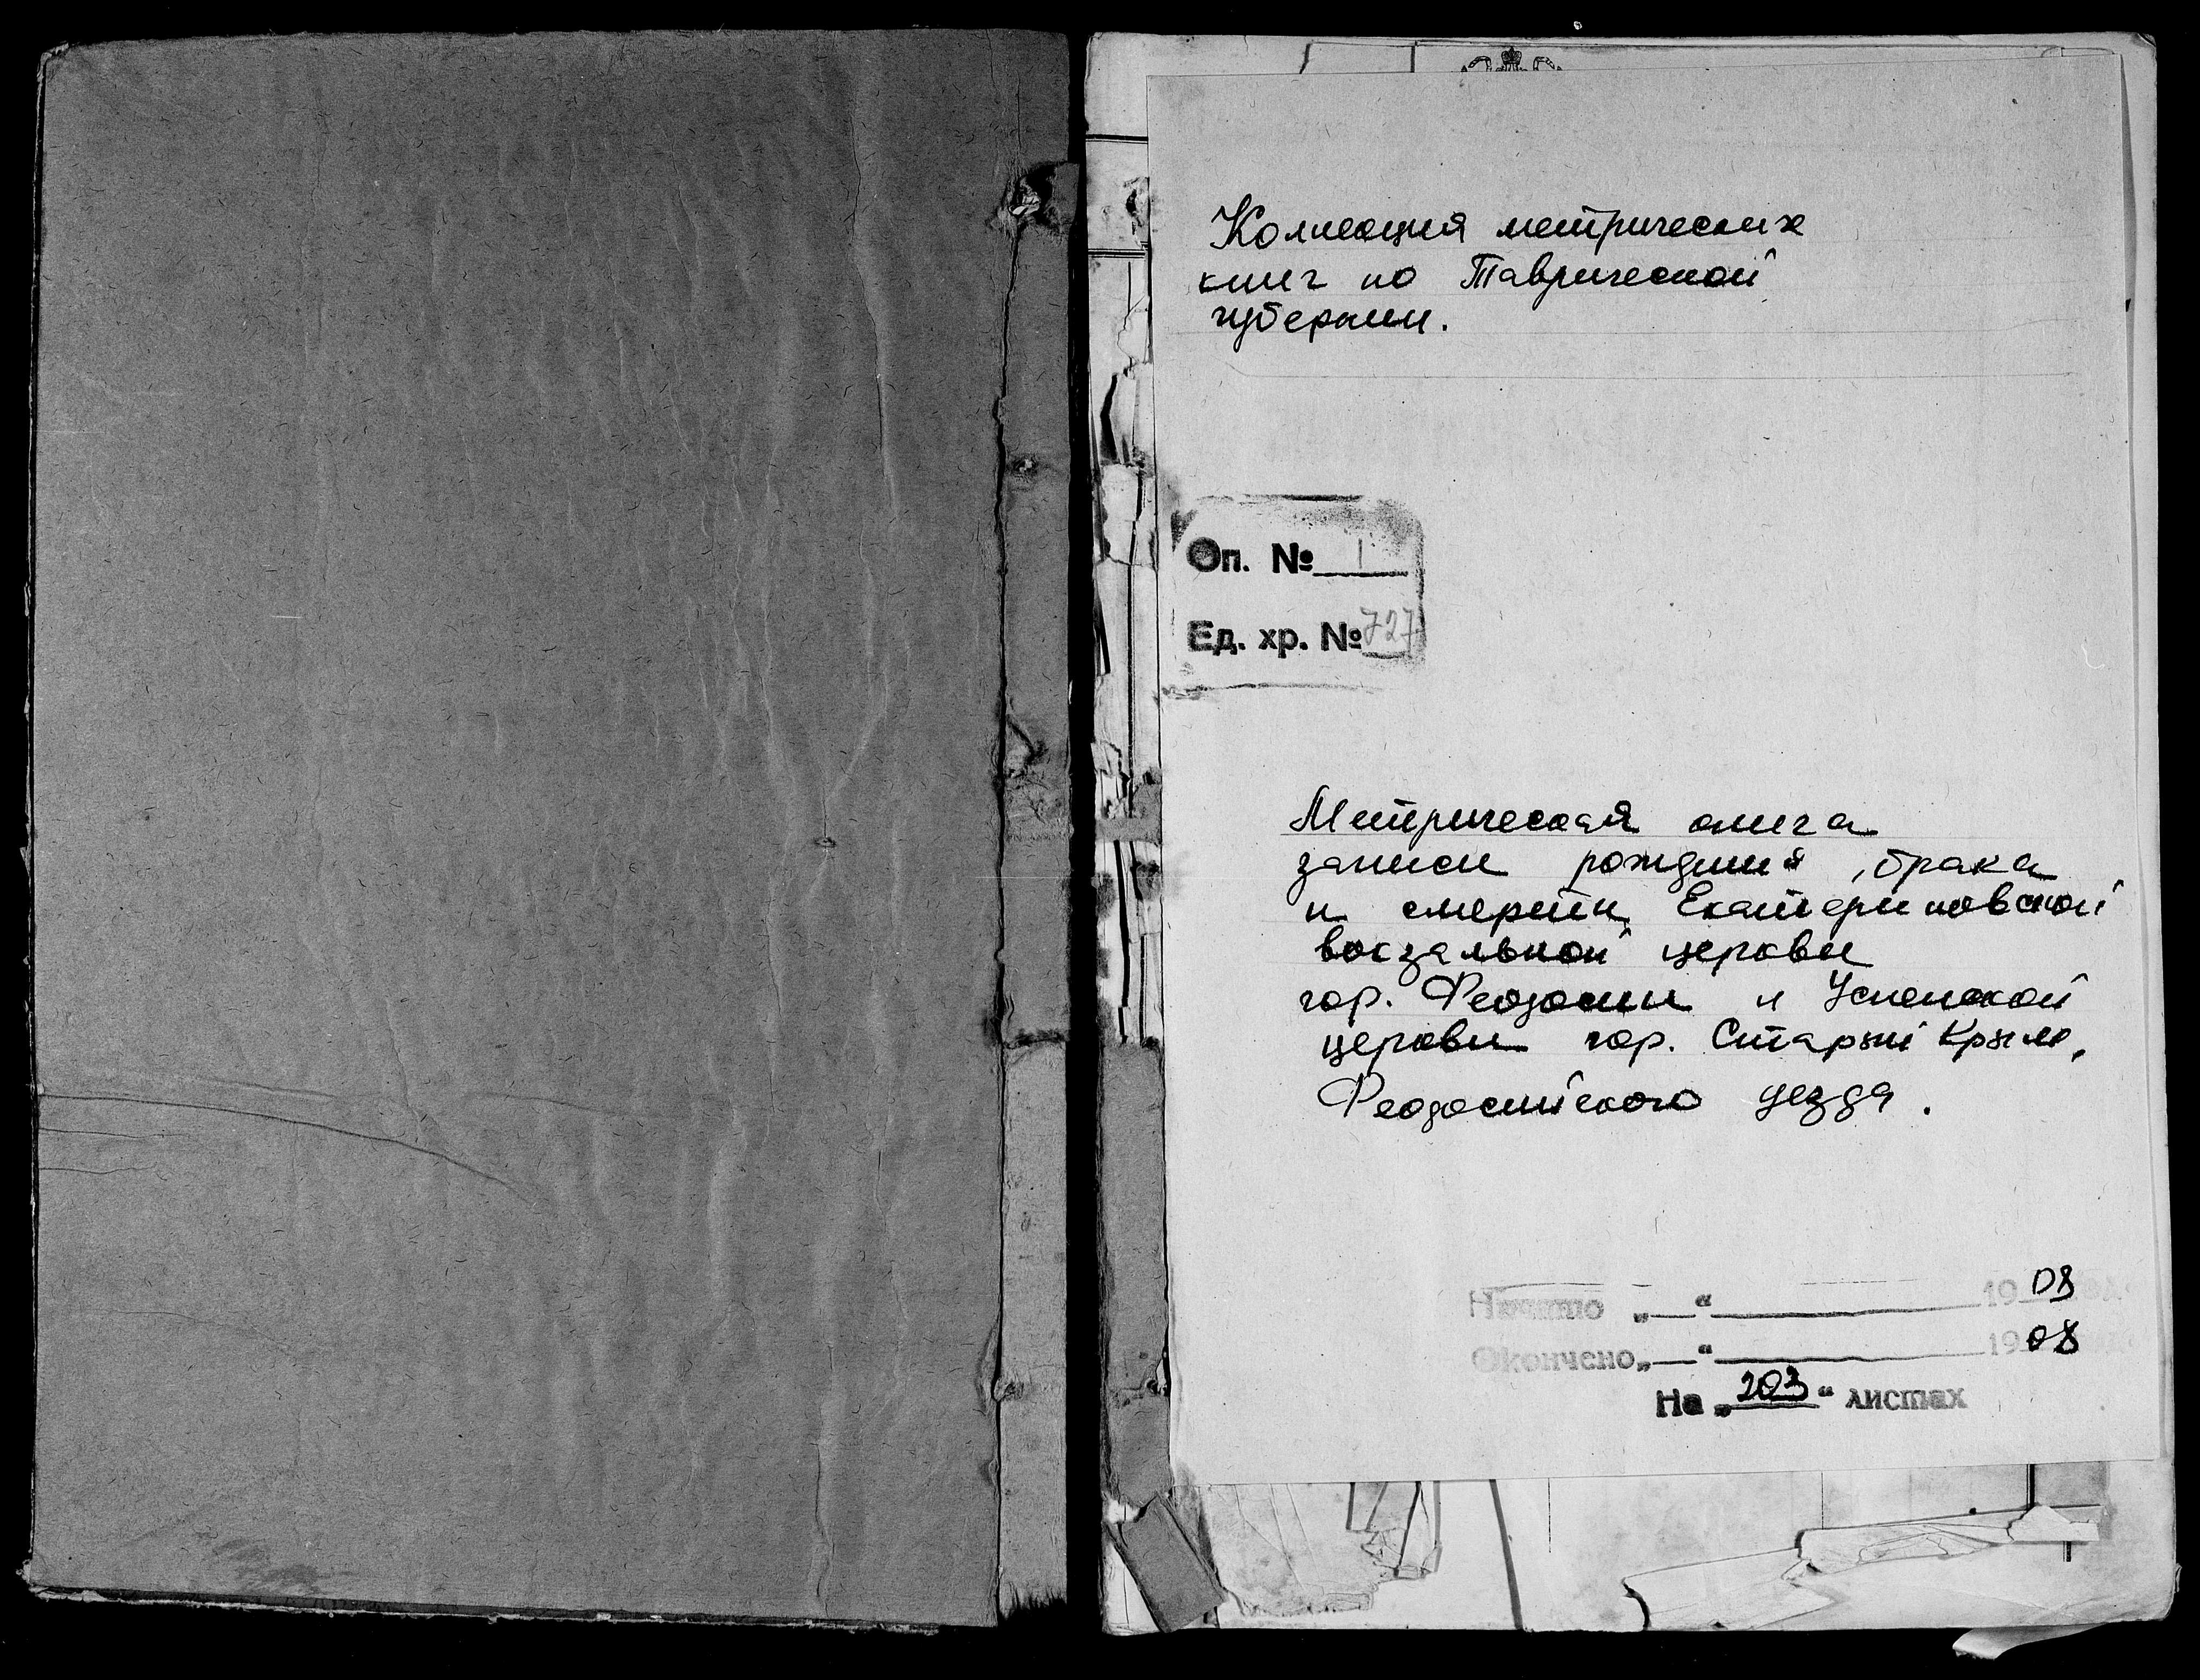 Коллекция метрических
книг по Таврической
губернии.
Оп. № 1
Ед. хр. № 727
Метрическая книга
записи рождения, брака
и смерти Екатериновской
вокзальной церкви
гор. Феодосии и Успенской
церкви гор. Старый Крым,
Феодосийского уезда.
Начато „ “ 1908
Окончено „ “ 1908
На „203“ листах